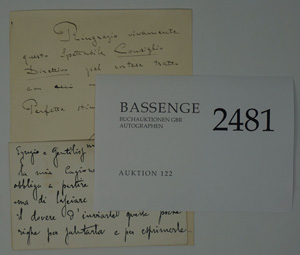 Ringrazio vivamente
questo Spettabile Consiglio
Direttivo pel
con cui
Perfetta
BASSENGE
BUCHAUKTIONEN GBR
AUTOGRAPHEN
2481
AUKTION 122
Egregio e Gentilis
La mia
obbliga a partire
ma di lasciare
il dovere d'inviarle queste poche
righe per salutarla e per esprimerle